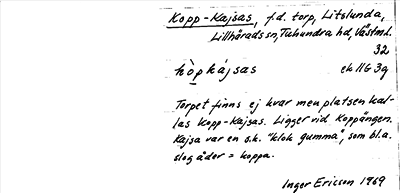 Kopp-Kajsas, f.d. torp, Litslunda,
Lillhärads sn, Tuhundra hd, Västml.
32
kòpkájsas ek 11G 3g
Torpet finns ej kvar men platsen kal-
las Kopp-Kajsas. Ligger vid Koppängen.
Kajsa var en s.k. "klok gumma", som bl.a.
slog åder = koppa.
Inger Ericson 1969